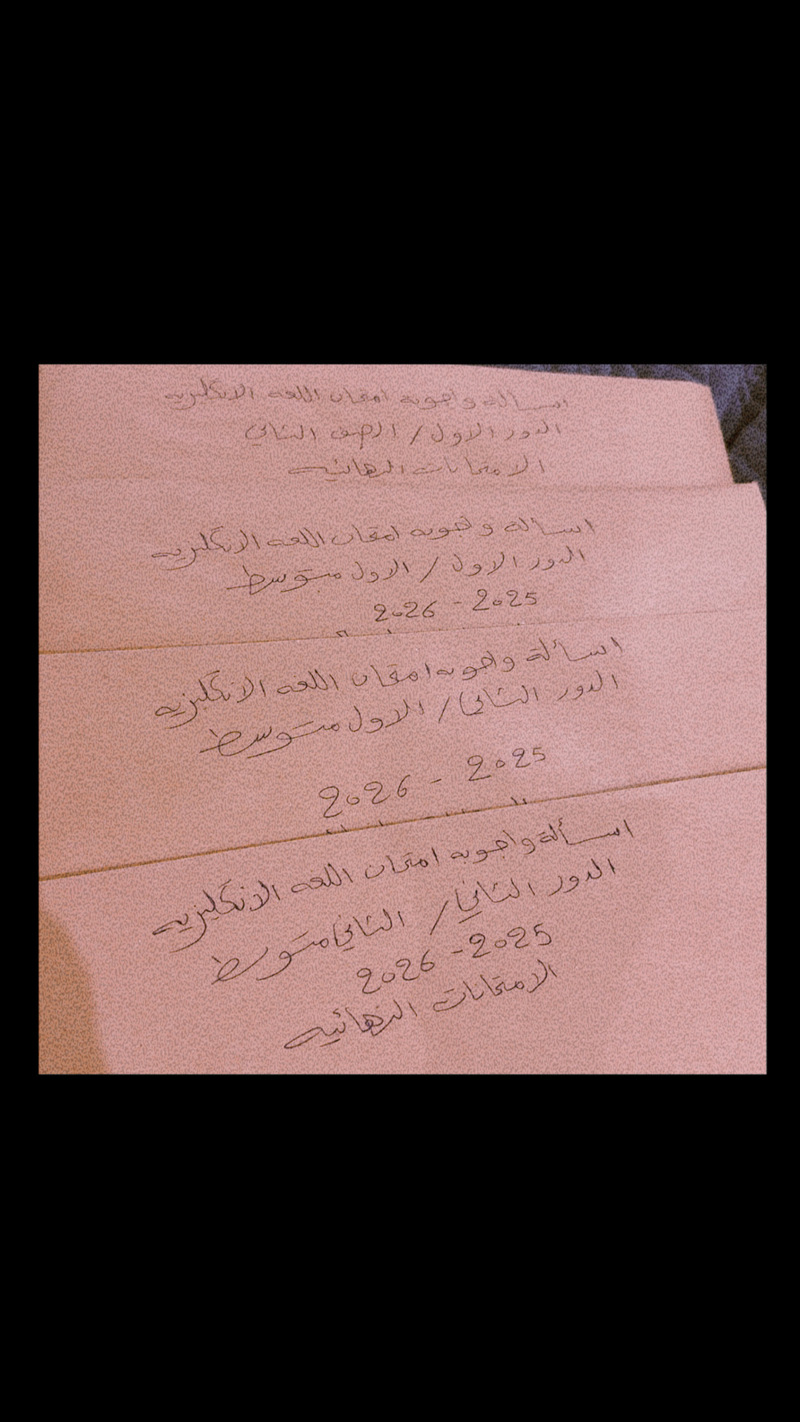 اسئالة واجوبه امتحان اللغه الانكليزيه
الدور الاول / الصف الثاني
الامتحانات النهائيه
اسئالة واجوبه امتحان اللغه الانكليزيه
الدور الاول / الاول متوسط
2025 - 2026
اسئالة واجوبه امتحان اللغه الانكليزيه
الدور الثاني / الاول متوسط
2025 - 2026
اسئألة واجوبه امتحان اللغه الانكليزيه
الدور الثاني / الثاني متوسط
2025 - 2026
الامتحانات النهائيه